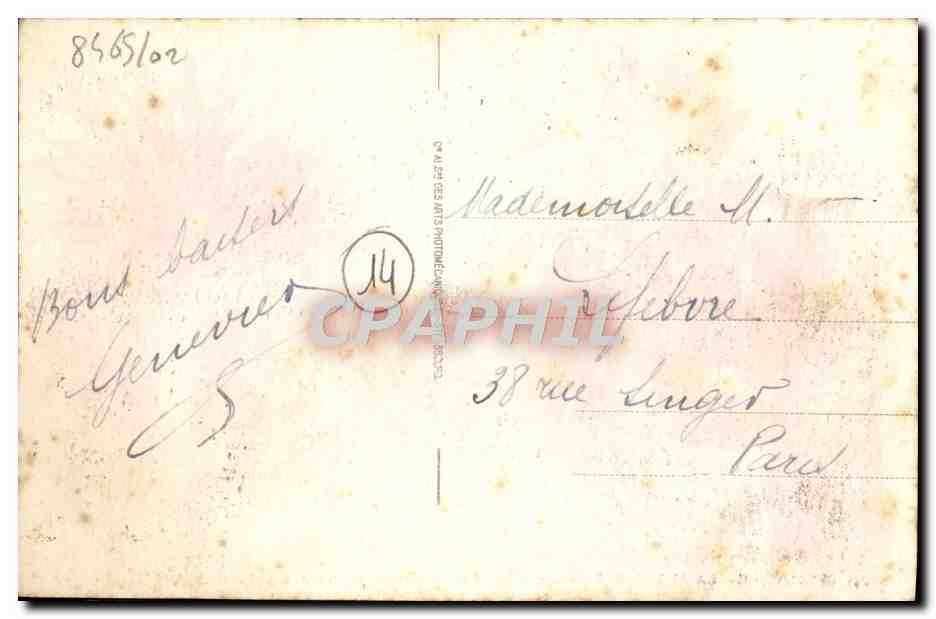 8465/02
Bons baisers
Geneviève
14
Cie ALSne DES ARTS PHOTOMÉCANIQUES
CPAPHIL
Mademoiselle M.
Lefebvre
38 rue Singer
Paris